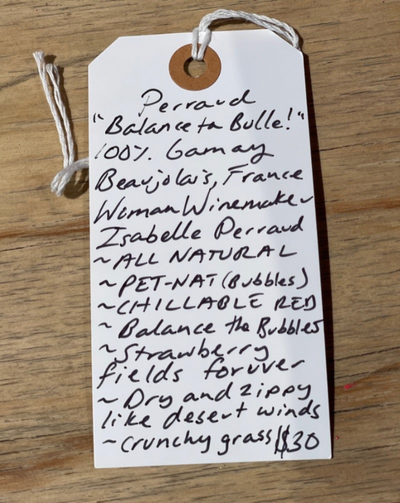 Perraud
"Balance ta Bulle!"
100% Gamay
Beaujolais, France
Woman Winemaker
Isabelle Perraud
~ ALL NATURAL
~ PET-NAT (Bubbles)
~ CHILLABLE RED
~ Balance the Bubbles
~ Strawberry
fields foruver
~ Dry and zippy
like desert winds
~ crunchy grass $30